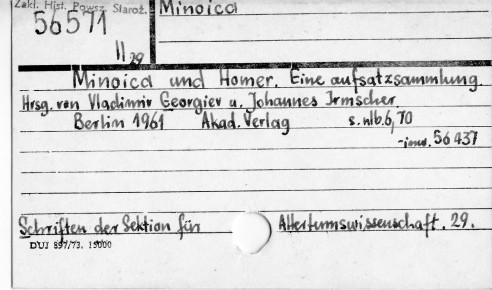 Zakł. Hist. Powsz. Staroż.
Minoica
56571
II 29
Minoica und Homer. Eine aufsatzsammlung.
Hrsg. von Vladimir Georgiev u. Johannes Irmscher.
Berlin 1961 Akad. Verlag s. nlb. 6, 70
-inw. 56437
Schriften der Sektion für Altertumswissenschaft. 29.
DUJ 897/73. 15000